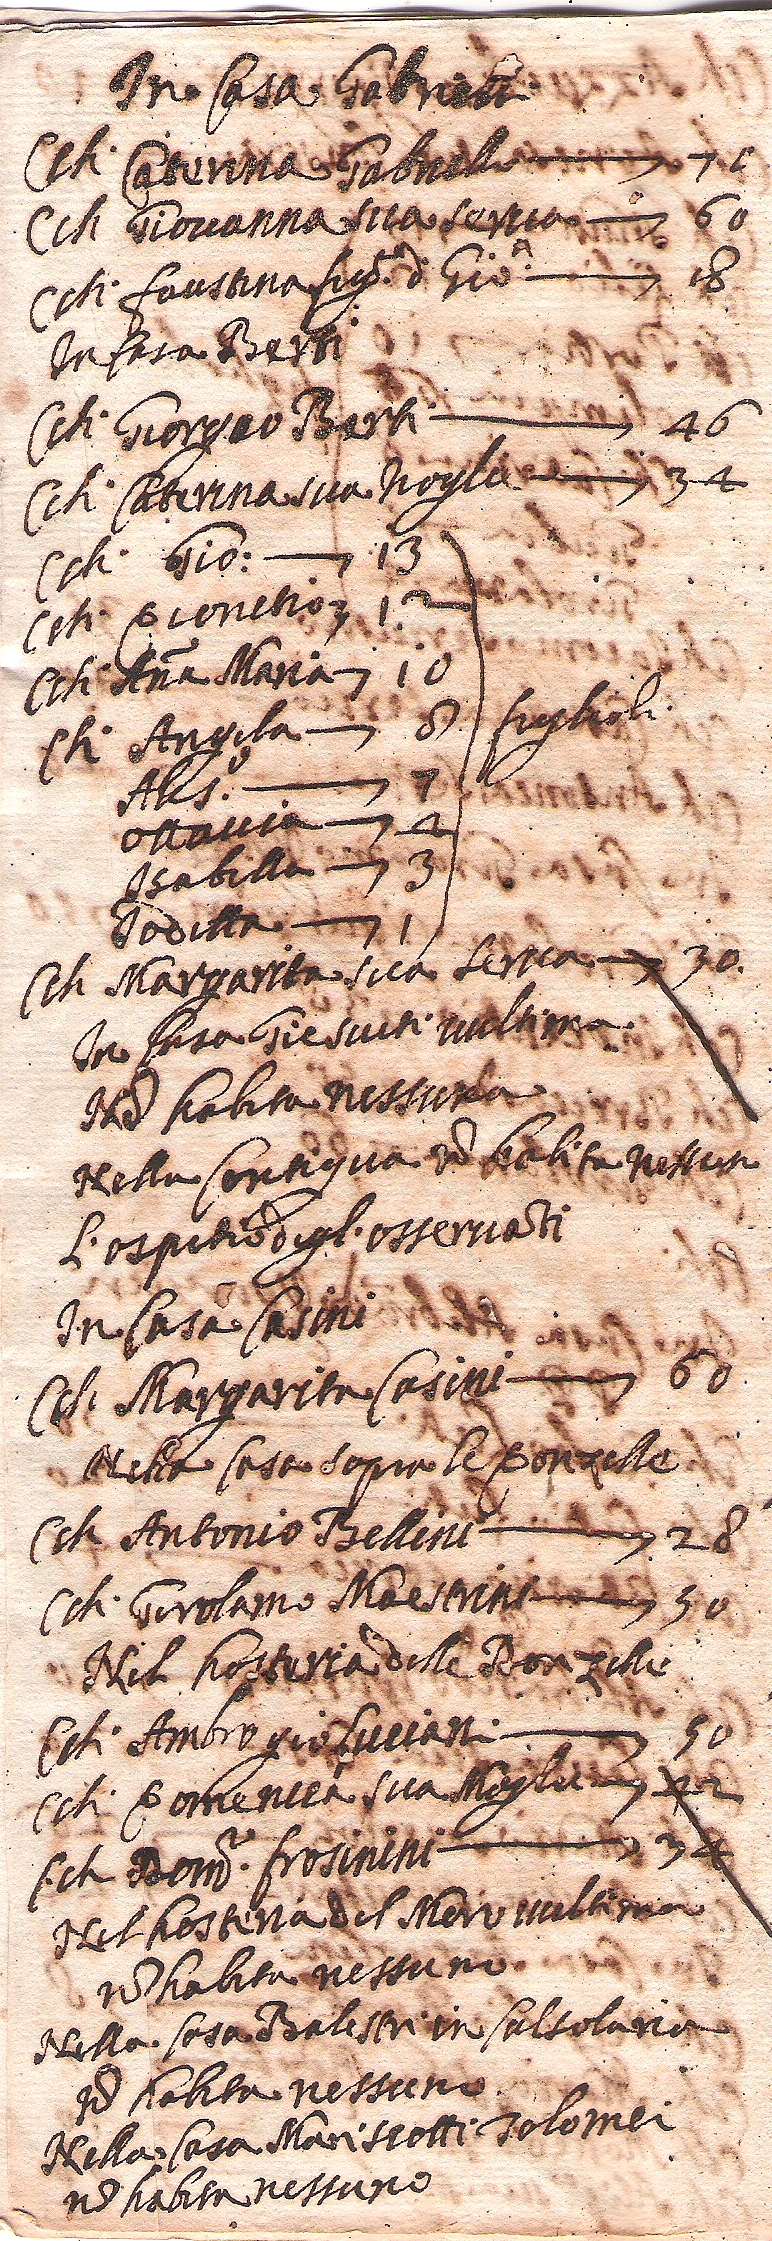 In Casa Gabrielli
Cch. Caterina Gabrielli 70
Cch Giouanna sua serua 60
Cch. faustina figª. di Gioª. 18
In Casa Berti
Cch. Giorgio Berti 46
Cch. Caterina sua Moglie 34
Cch. Gio: 13
Cch. Dionetio 12
Cch. Anna Maria 10
Ch. Angela 8 figlioli.
Ales.º 7
ottauia 4
Isabella 3
Iuditta 1
Cch Margarita sua serua 30.
In Casa Giesuiti ultima
Nō habita nessuno
Nella Contigua nō habita nessun
L'ospitio degl'osseruāti
In Casa Casini
Cch. Margarita Casini 60
Nella Casa sopra le Donzelle
Cch Antonio Bellini 28
Cch. Girolamo Maestrini 50
Nel hosteria delle Donzelle
Cch. Ambrogio Luciani 50
Cch. Domenica sua Moglie 42
Cch Domº. frosinini 34
Nel hosteria del Moro ultima
nō habita nessuno
Nella Casa Balestri in Calsolaria
nō habita nessuno.
Nella Casa Mariscotti Tolomei
nō habita nessuno